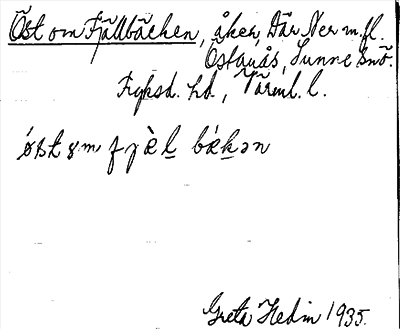 Öst om Fjällbäcken, åker, Där Ner m.fl.
Östanås, Sunne Snö.
Fryksd. hd., Värml. l.
østɤm fjèḻ bǽḵən
Greta Hedin 1935.